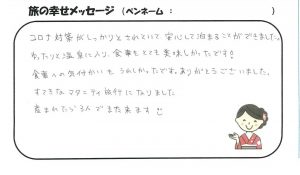 旅の幸せメッセージ (ペンネーム： )
コロナ対策がしっかりとされていて安心して泊まることができました。
ゆったりと温泉に入り、食事もとても美味しかったです！
食事への気付かいもうれしかったです。ありがとうございました。
すてきなマタニティ旅行になりました
産まれたら3人でまた来ます